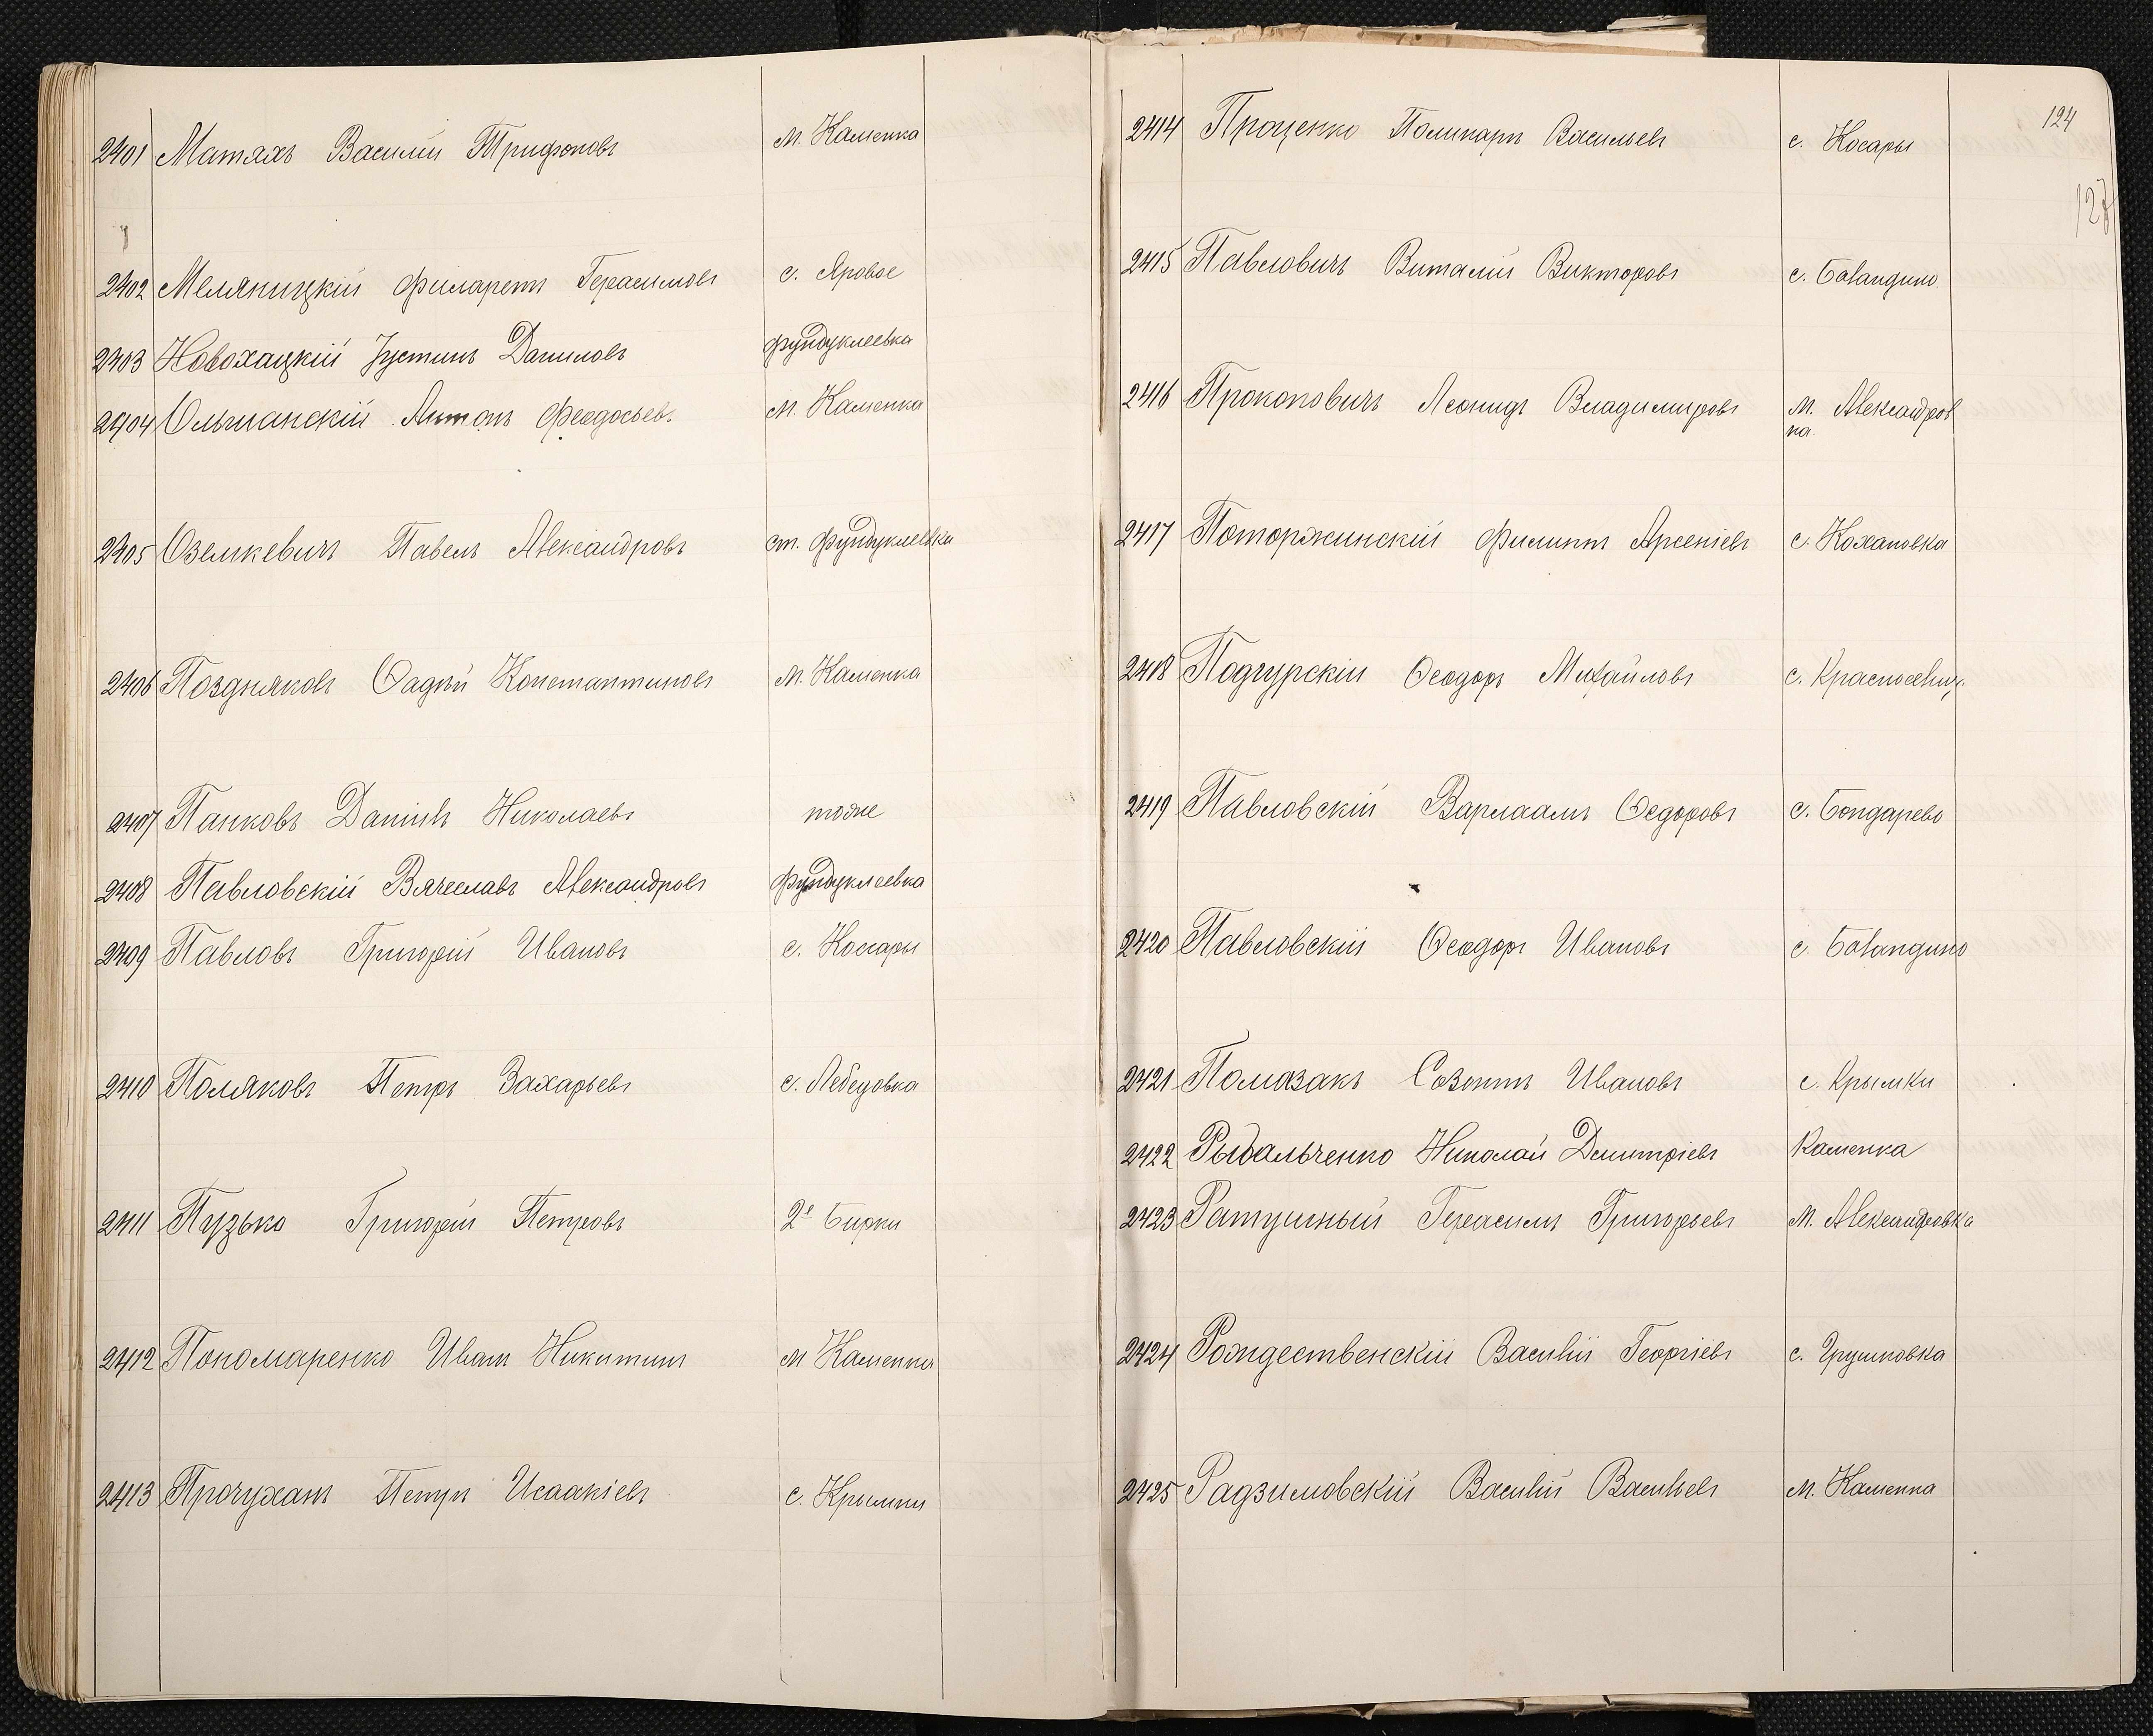 2401 Матяхъ Василій Трифоновъ м. Каменка
2402 Меляницкій Филаретъ Герасимовъ с. Яровое
2403 Новохацкій Іустинъ Даниловъ Фундуклеевка
2404 Ольшанскій Антонъ Феодосьев. м. Каменка
2405 Оземкевичъ Павелъ Александровъ ст. Фундуклеевка
2406 Поздняковъ Фадѣй Константиновъ м. Каменка
2407 Панковъ Даніилъ Николаевъ тоже
2408 Павловскій Вячеславъ Александровъ Фундуклеевка
2409 Павловъ Григорій Ивановъ с. Косары
2410 Поляковъ Петръ Захарьевъ с. Лебедовка
2411 Пузько Григорій Петровъ 2е Бирки
2412 Пономаренко Иванъ Никитинъ м Каменка
2413 Прочуханъ Петръ Исаакіевъ с. Крымки
124
127
2414 Проценко Поликарпъ Васильевъ с. Косары
2415 Павловичъ Виталій Викторовъ с. Баландино
2416 Прокоповичъ Леонидъ Владимировъ м. Александров
ка.
2417 Поторжинскій Филиппъ Арсеніевъ с. Кохановка
2418 Подгурскій Ѳеодоръ Михайловъ с. Красносельц.
2419 Павловскій Варлаамъ Ѳедоровъ с. Бондарево
2420 Павловскій Ѳеодоръ Ивановъ с. Баландино
2421 Помазакъ Созонтъ Ивановъ с. Крымки
2422 Рыдальченко Николай Димитріевъ Каменка
2423 Ратушный Герасимъ Григорьевъ м. Александровка
2424 Рождественскій Василій Георгіевъ с. Грушковка
2425 Радзимовскій Василій Васильевъ м. Каменка